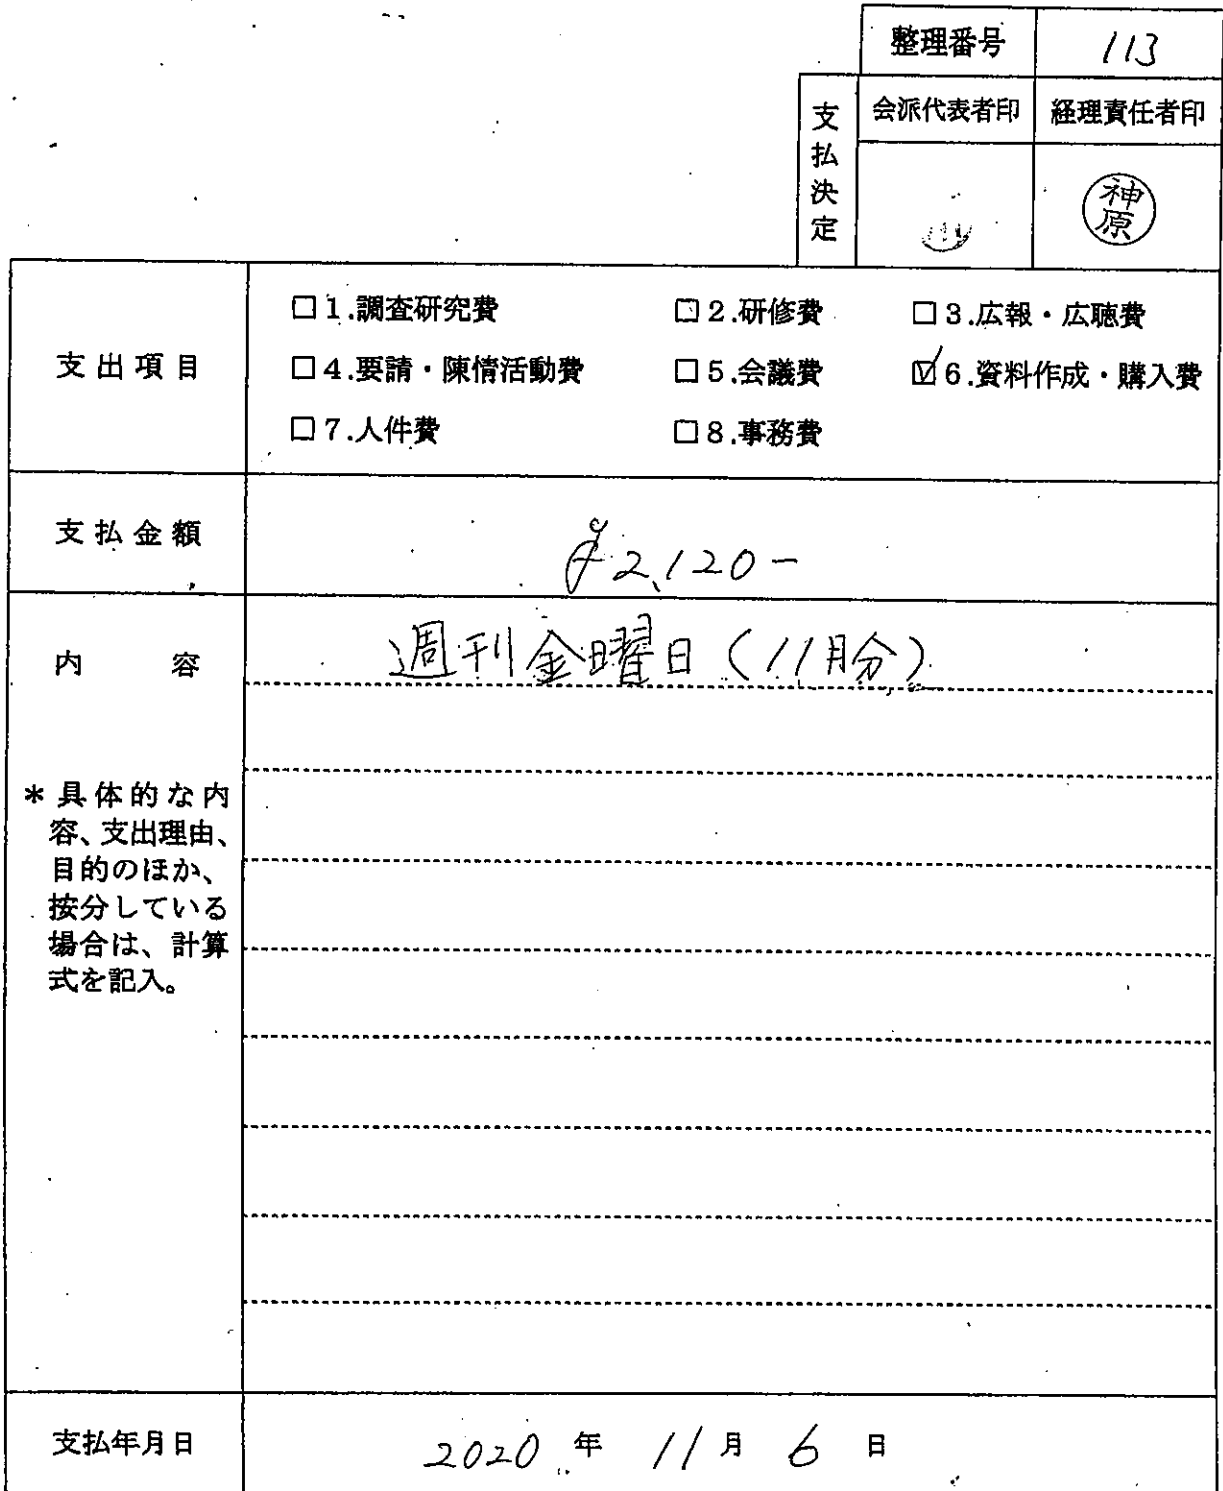 整理番号 113
支払決定
会派代表者印 経理責任者印
神原
支出項目
□1.調査研究費 □2.研修費 □3.広報・広聴費
□4.要請・陳情活動費 □5.会議費 ☑6.資料作成・購入費
□7.人件費 □8.事務費
支払金額
2,120-
内容
週刊金曜日(11月分)
*具体的な内
容、支出理由、
目的のほか、
按分している
場合は、計算
式を記入。
支払年月日 2020年11月6日